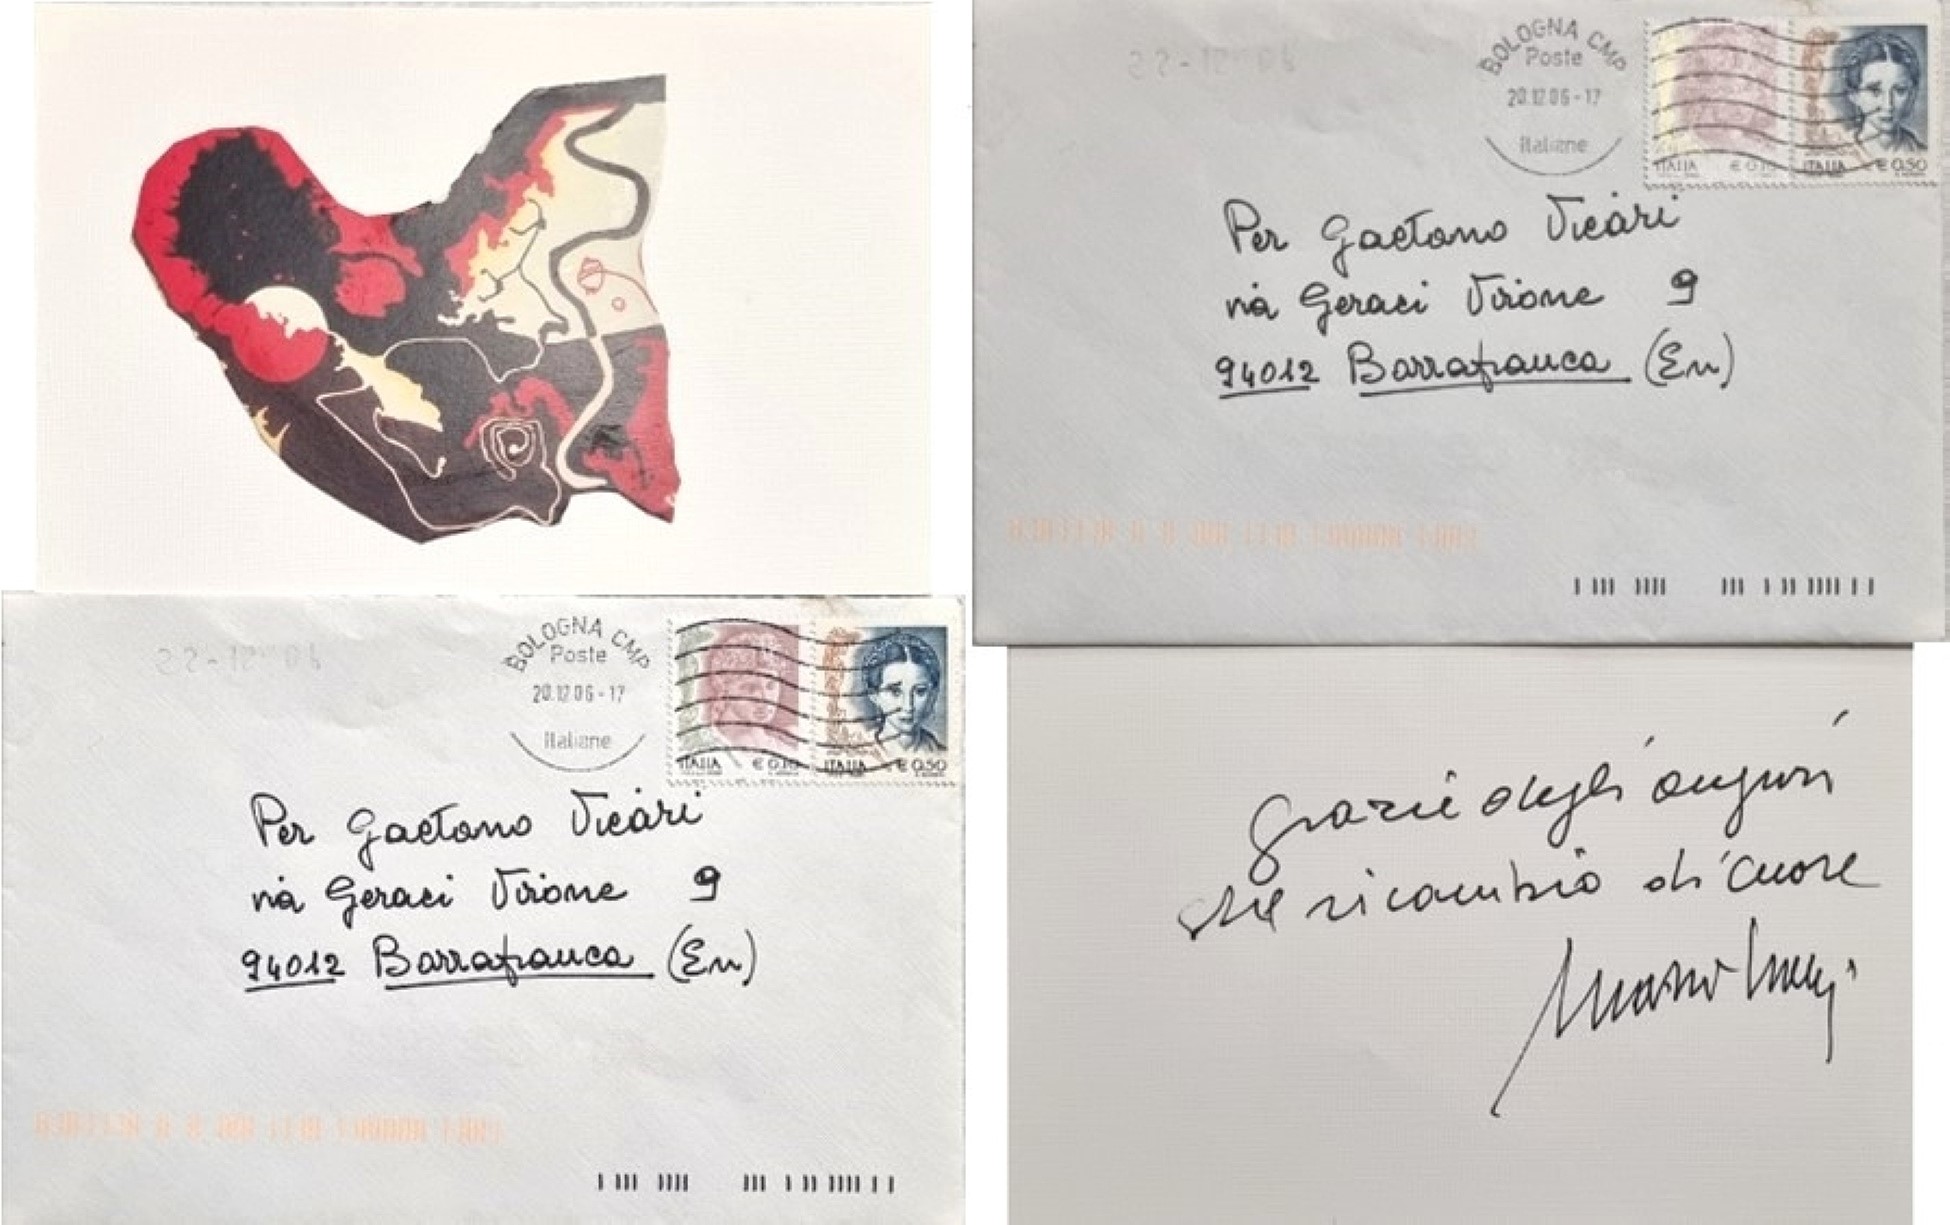 BOLOGNA CMP
Poste
20.12.06-17
Italiane
ITALIA € 0,10
ITALIA € 0,50
Per Gaetano Vicari
via Geraci Virone 9
94012 Barrafranca (En)
BOLOGNA CMP
Poste
20.12.06-17
Italiane
ITALIA € 0,10
ITALIA € 0,50
Per Gaetano Vicari
via Geraci Virone 9
94012 Barrafranca (En)
grazie degli auguri
che ricambio di cuore